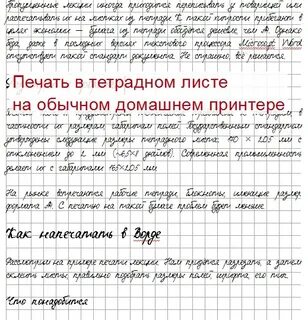 пропущенные лекции иногда приходится переписывать у товарищей или
распечатывать их на листках из тетради. К такой хитрости прибегают в
целях экономии – бумага из тетради обходится дешевле чем А. Однако
беда, даже в последней версии текстового процессора Microsoft Word
отсутствует такой стандарт документа. Но страшно, всё решается.
Печать в тетрадном листе
на обычном домашнем принтере
частности их размерам, габаритам полей. Государственным стандартом
утверждены следующие размеры тетрадного листа: 170 × 205 мм с
отклонением до 2 мм
Современная промышленность
делает их с габаритами 165×205 мм.
На рынке встречаются рабочие тетради, блокноты, имеющие размер
формата А. С печатью на такой бумаге проблем будет меньше.
Как напечатать в Ворде
Рассмотрим на примере печати лекции. Нам придётся разрезать, а затем
склеить листы, правильно подобрать размеры полей, шрифта, его тип.
Что понадобится